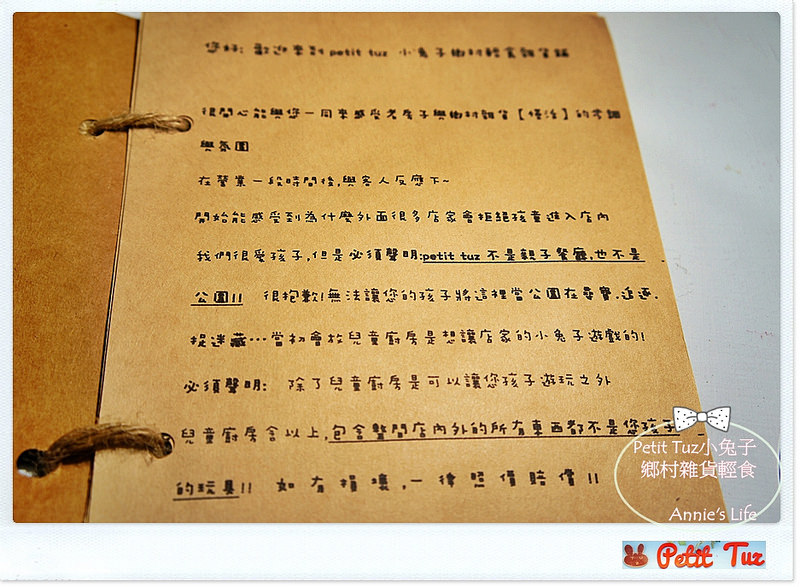 您好: 歡迎來到petit tuz 小兔子鄉村輕食雜貨舖
很開心能與您一同來感受老房子與鄉村雜貨【慢活】的步調
與氛圍
在營業一段時間後,與客人反應下~
開始能感受到為什麼外面很多店家會拒絕孩童進入店內
我們很愛孩子,但是必須聲明:petit tuz 不是親子餐廳,也不是
公園!! 很抱歉!無法讓您的孩子將這裡當公園在尋寶.追逐.
捉迷藏…當初會放兒童廚房是想讓店家的小兔子遊戲的!
必須聲明: 除了兒童廚房是可以讓您孩子遊玩之外
兒童廚房含以上,包含整間店內外的所有東西都不是您孩子
的玩具!! 如有損壞,一律照價賠償!!
Petit Tuz小兔子
鄉村雜貨輕食
Annie's Life
Petit Tuz